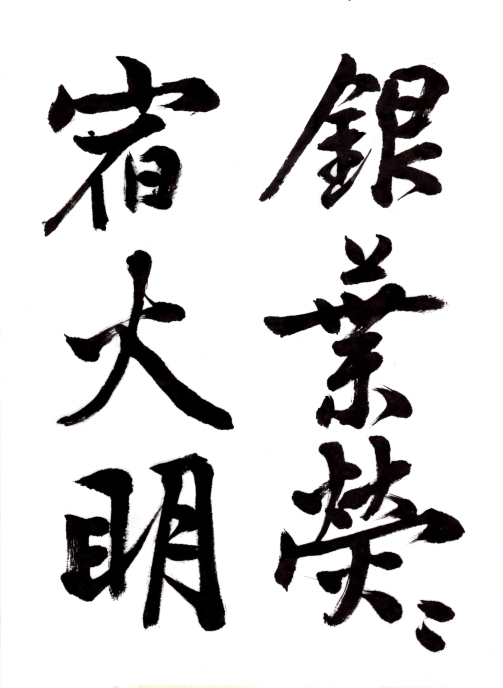 銀葉熒〻
宿火明